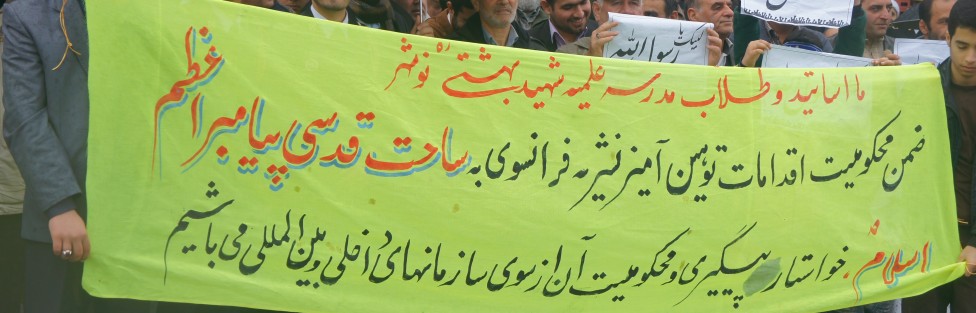 لبیک یا
رسول الله
ما اساتید و طلاب مدرسه علمیه شهید بهشتی نوشهر
ضمن محکومیت اقدامات توهین آمیز نشریه فرانسوی به ساحت قدسی پیامبر اعظم
اسلام خواستار پیگیری و محکومیت آن از سوی سازمانهای داخلی و بین المللی می باشیم